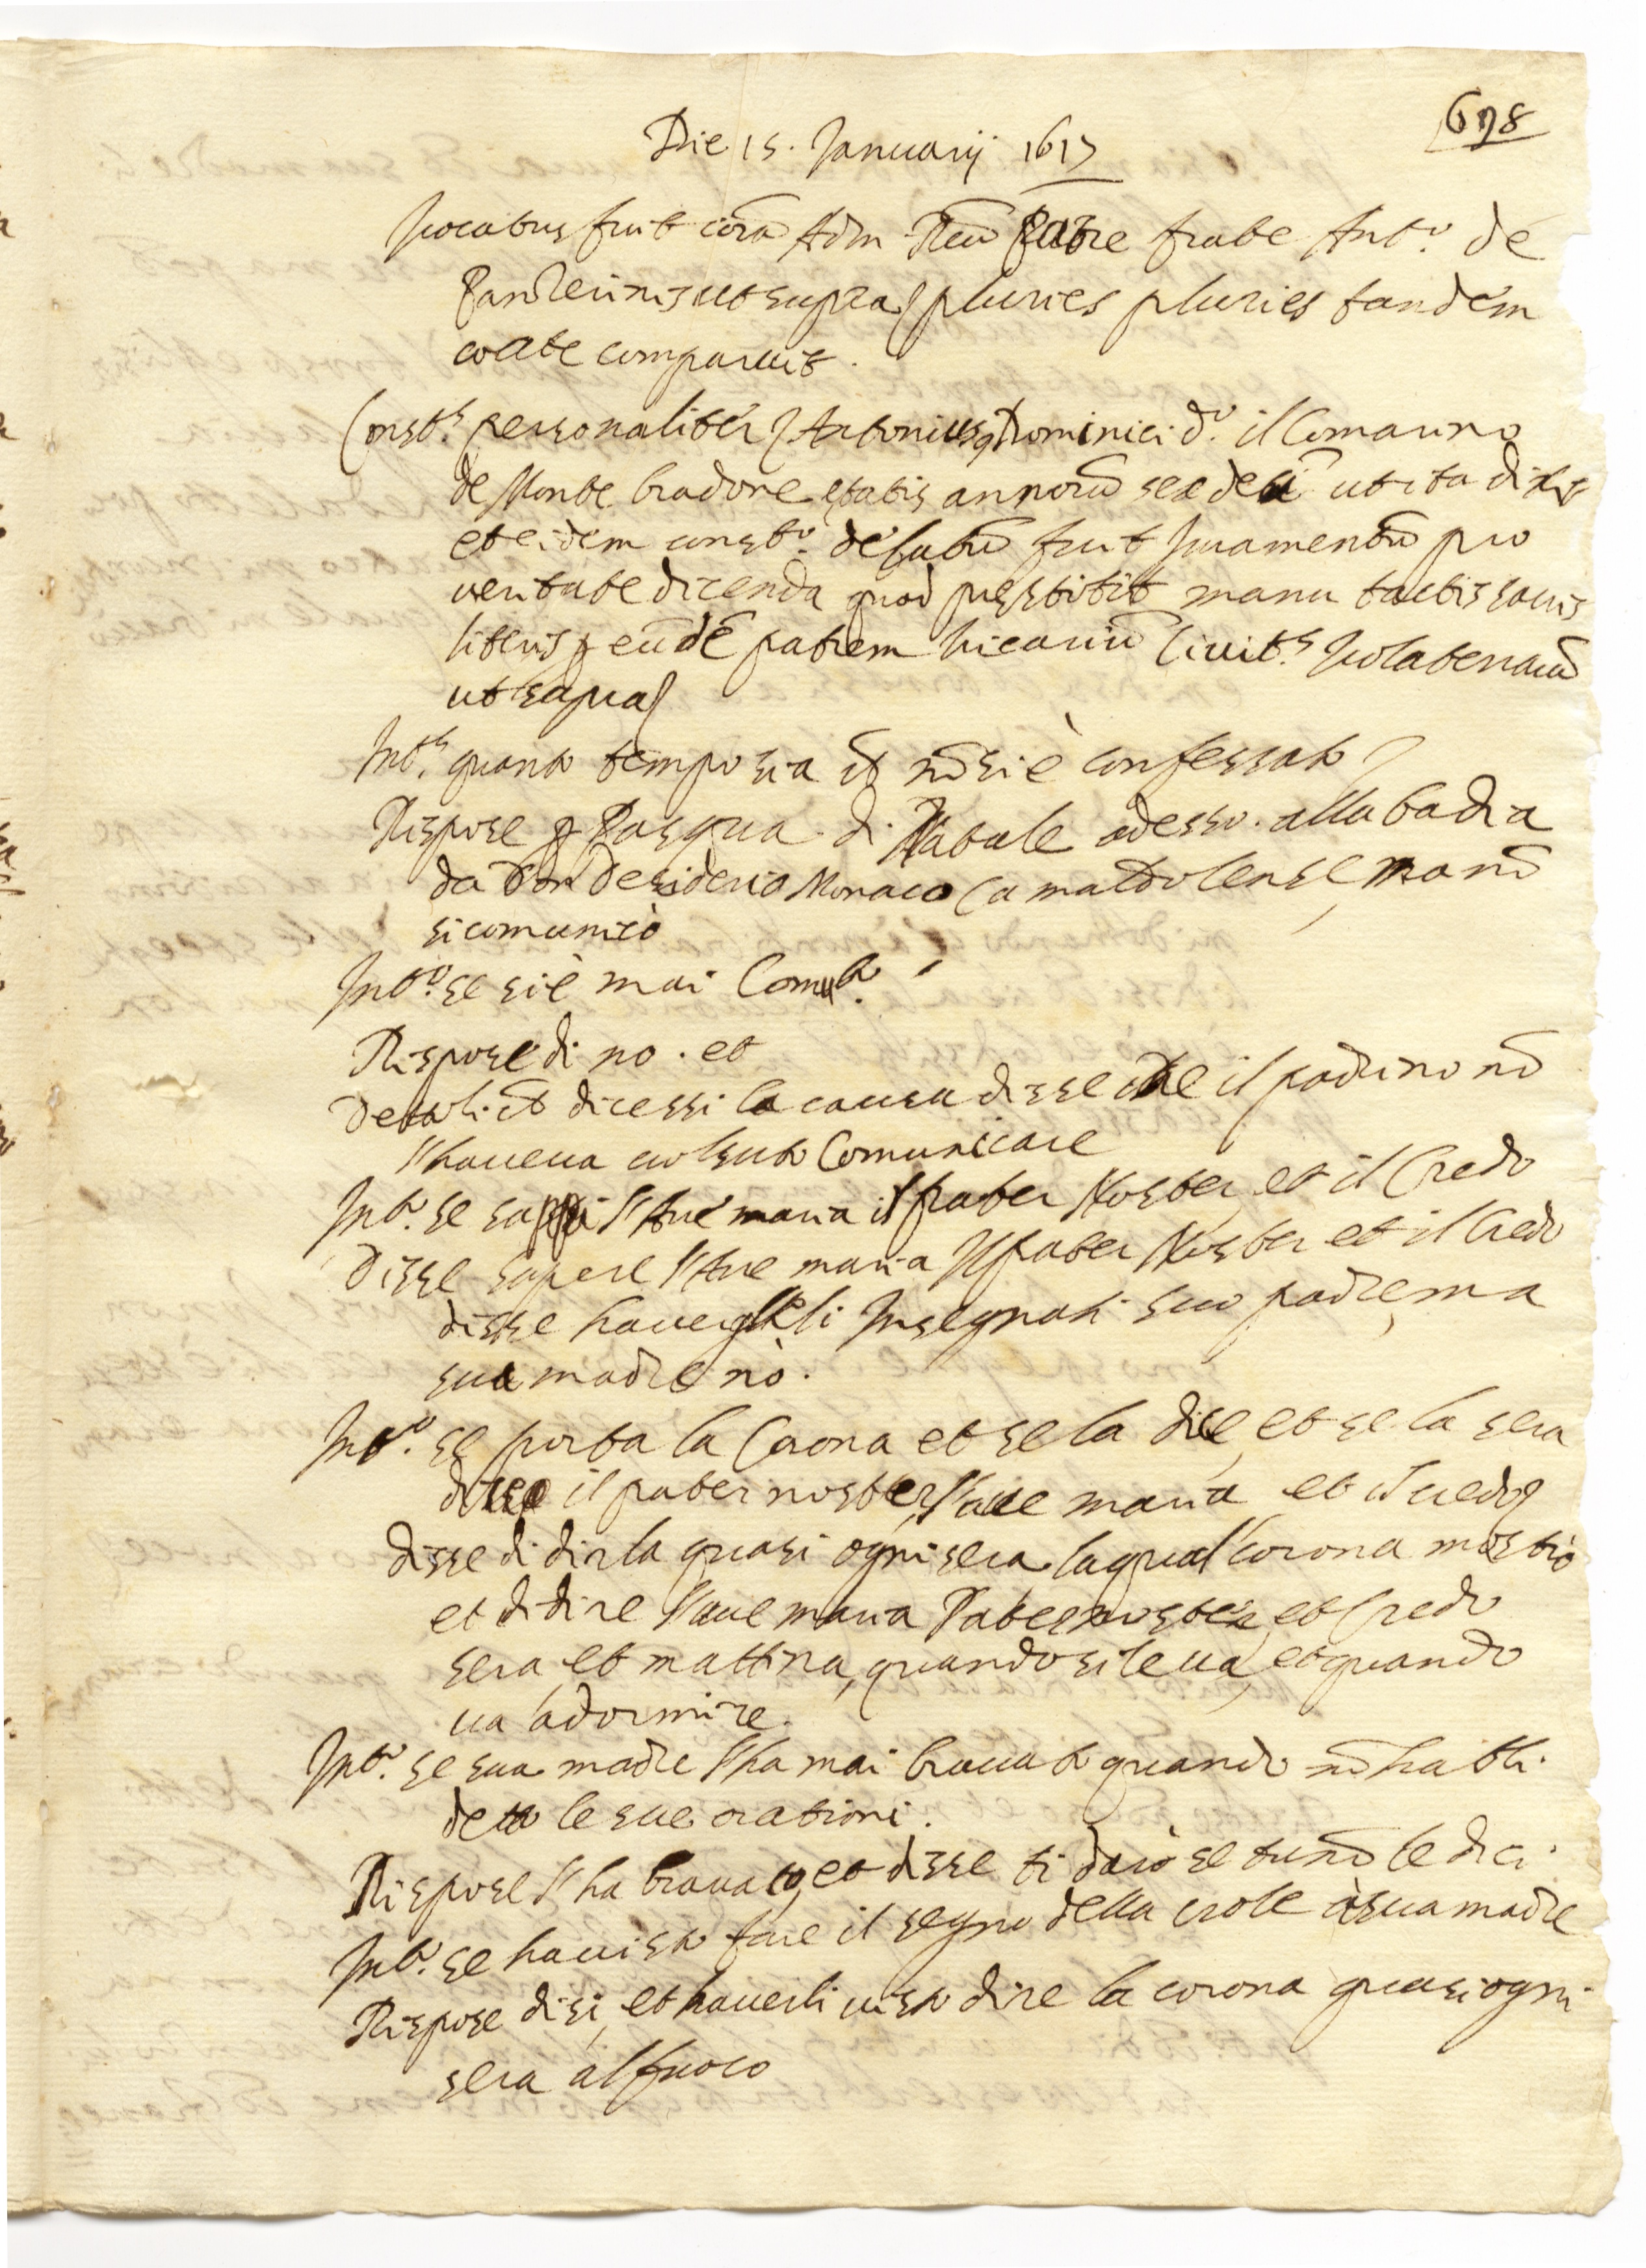 678
Die 15. Januarij 1617
Vocatus fuit corã Adm Reũ Patre fratre Antº. de
Pandeiinis ut supra pluries pluries tandem
comparuit.
Constˢ. personaliter Antonius Dominici dº. il Comanno
de Monte tradone etatis annorũ sexdecĩ ut ita dixit
et eidem constº. delatũ fuit Juramentũ pro
veritate dicenda quod prestitit manu tactis sacris
literis p eũdẽ patrem Vicariũ Civitˢ. Volaterrarũ
ut supra
Intˢ. quanto tempo sia ch nõ si è confessato
Rispose p Pasqua di Natale adesso alla badia
da Don Desiderio Monaco Camaldolense, ma nõ
si comunicò
Intº. se si è mai Comutº.
Rispose di no. et
Dettoli ch dicessi la causa disse che il padrino nõ
l'haueua voluto Comunicare
Intº. se sappi l'Aue maria il pater Noster, et il Credo
Disse sapere l'Aue maria Il pater Noster et il Credo
disse hauerglili Insegnati suo padre, ma
sua madre nò.
Intº. se porta la Corona et se la dice, et se la sera
dice il pater noster, l'aue maria et il credo
disse di dirla quasi ogni sera la qual corona mostrò
et di dire l'aue maria Pater noster, et Credo
sera et mattina, quando si leua, et quando
ua à dormire.
Intº. se sua madre l'ha mai brauato quando nõ hatti
detto le sue orationi.
Rispose l'ha brauato, et disse ti darò se tu nõ le dici
Intº. se ha uisto fare il segno della croce à sua madre
Rispose di si, et hauerli uisto dire la corona quasi ogni
sera al fuoco